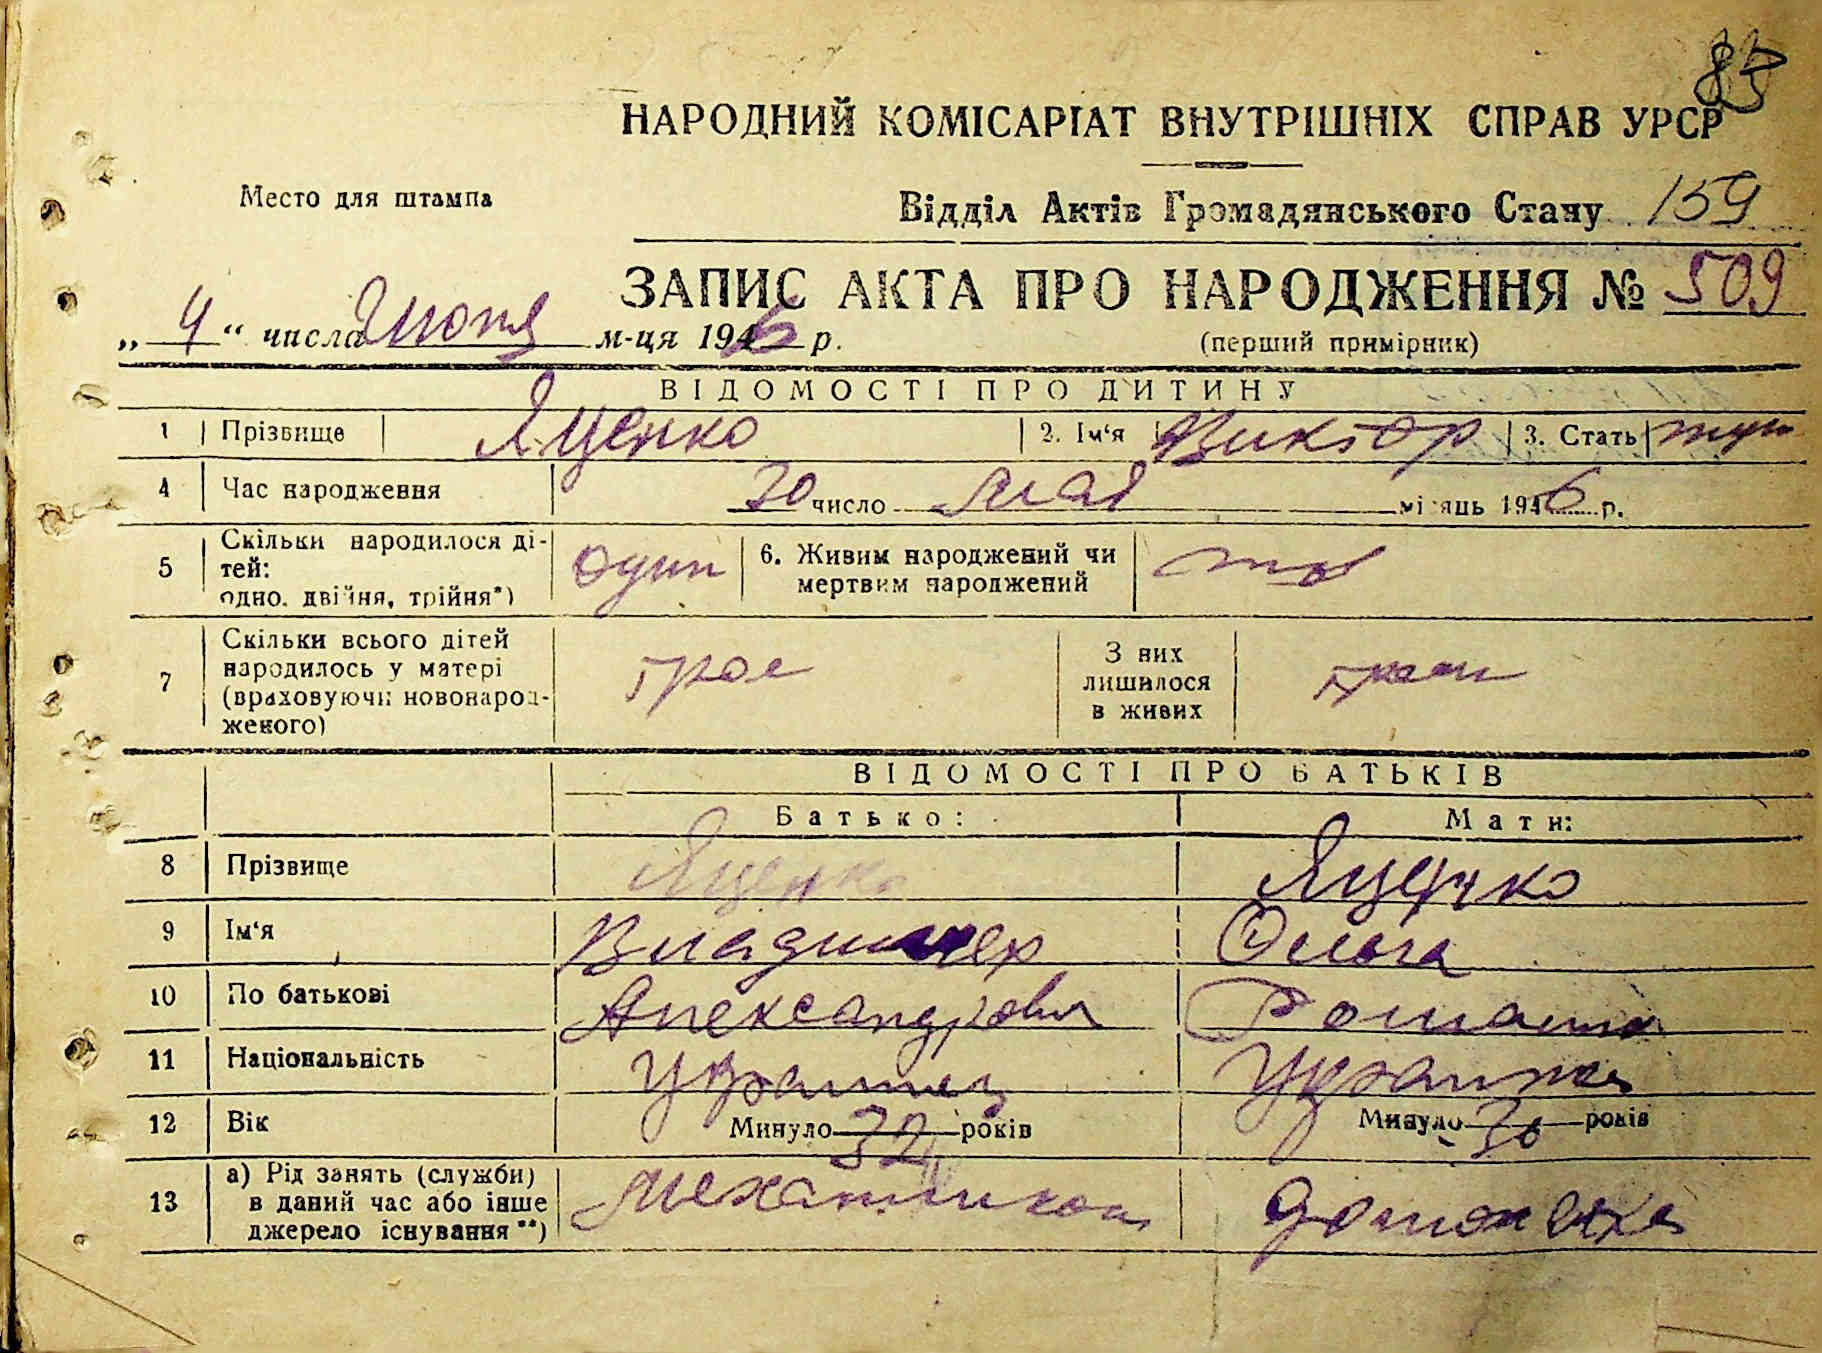 85
НАРОДНИЙ КОМІСАРІАТ ВНУТРІШНІХ СПРАВ УРСР
Место для штампа
Відділ Актів Громадянського Стану 159
ЗАПИС АКТА ПРО НАРОДЖЕННЯ № 509
„ 4 “ числа Июня м-ця 1946 р.
(перший примірник)
ВІДОМОСТІ ПРО ДИТИНУ
1 Прізвище Яценко 2. Ім‘я Виктор 3. Стать муж
4 Час народження 30 число мая місяць 1946 р.
5 Скільки народилося ді-
тей:
одно, двійня, трійня*) один 6. Живим народжений чи
мертвим народжений
7 Скільки всього дітей
народилось у матері
(враховуючи новонарод-
женого) трое З них
лишилося
в живих
ВІДОМОСТІ ПРО БАТЬКІВ
Батько: Мати:
8 Прізвище Яценко Яценко
9 Ім‘я Владимир Ольга
10 По батькові Александрович
11 Національність Украинец Украинка
12 Вік Минуло 32 років Минуло 30 років
13 а) Рід занять (служби)
в даний час або інше
джерело існування **) механиком домохозяйка